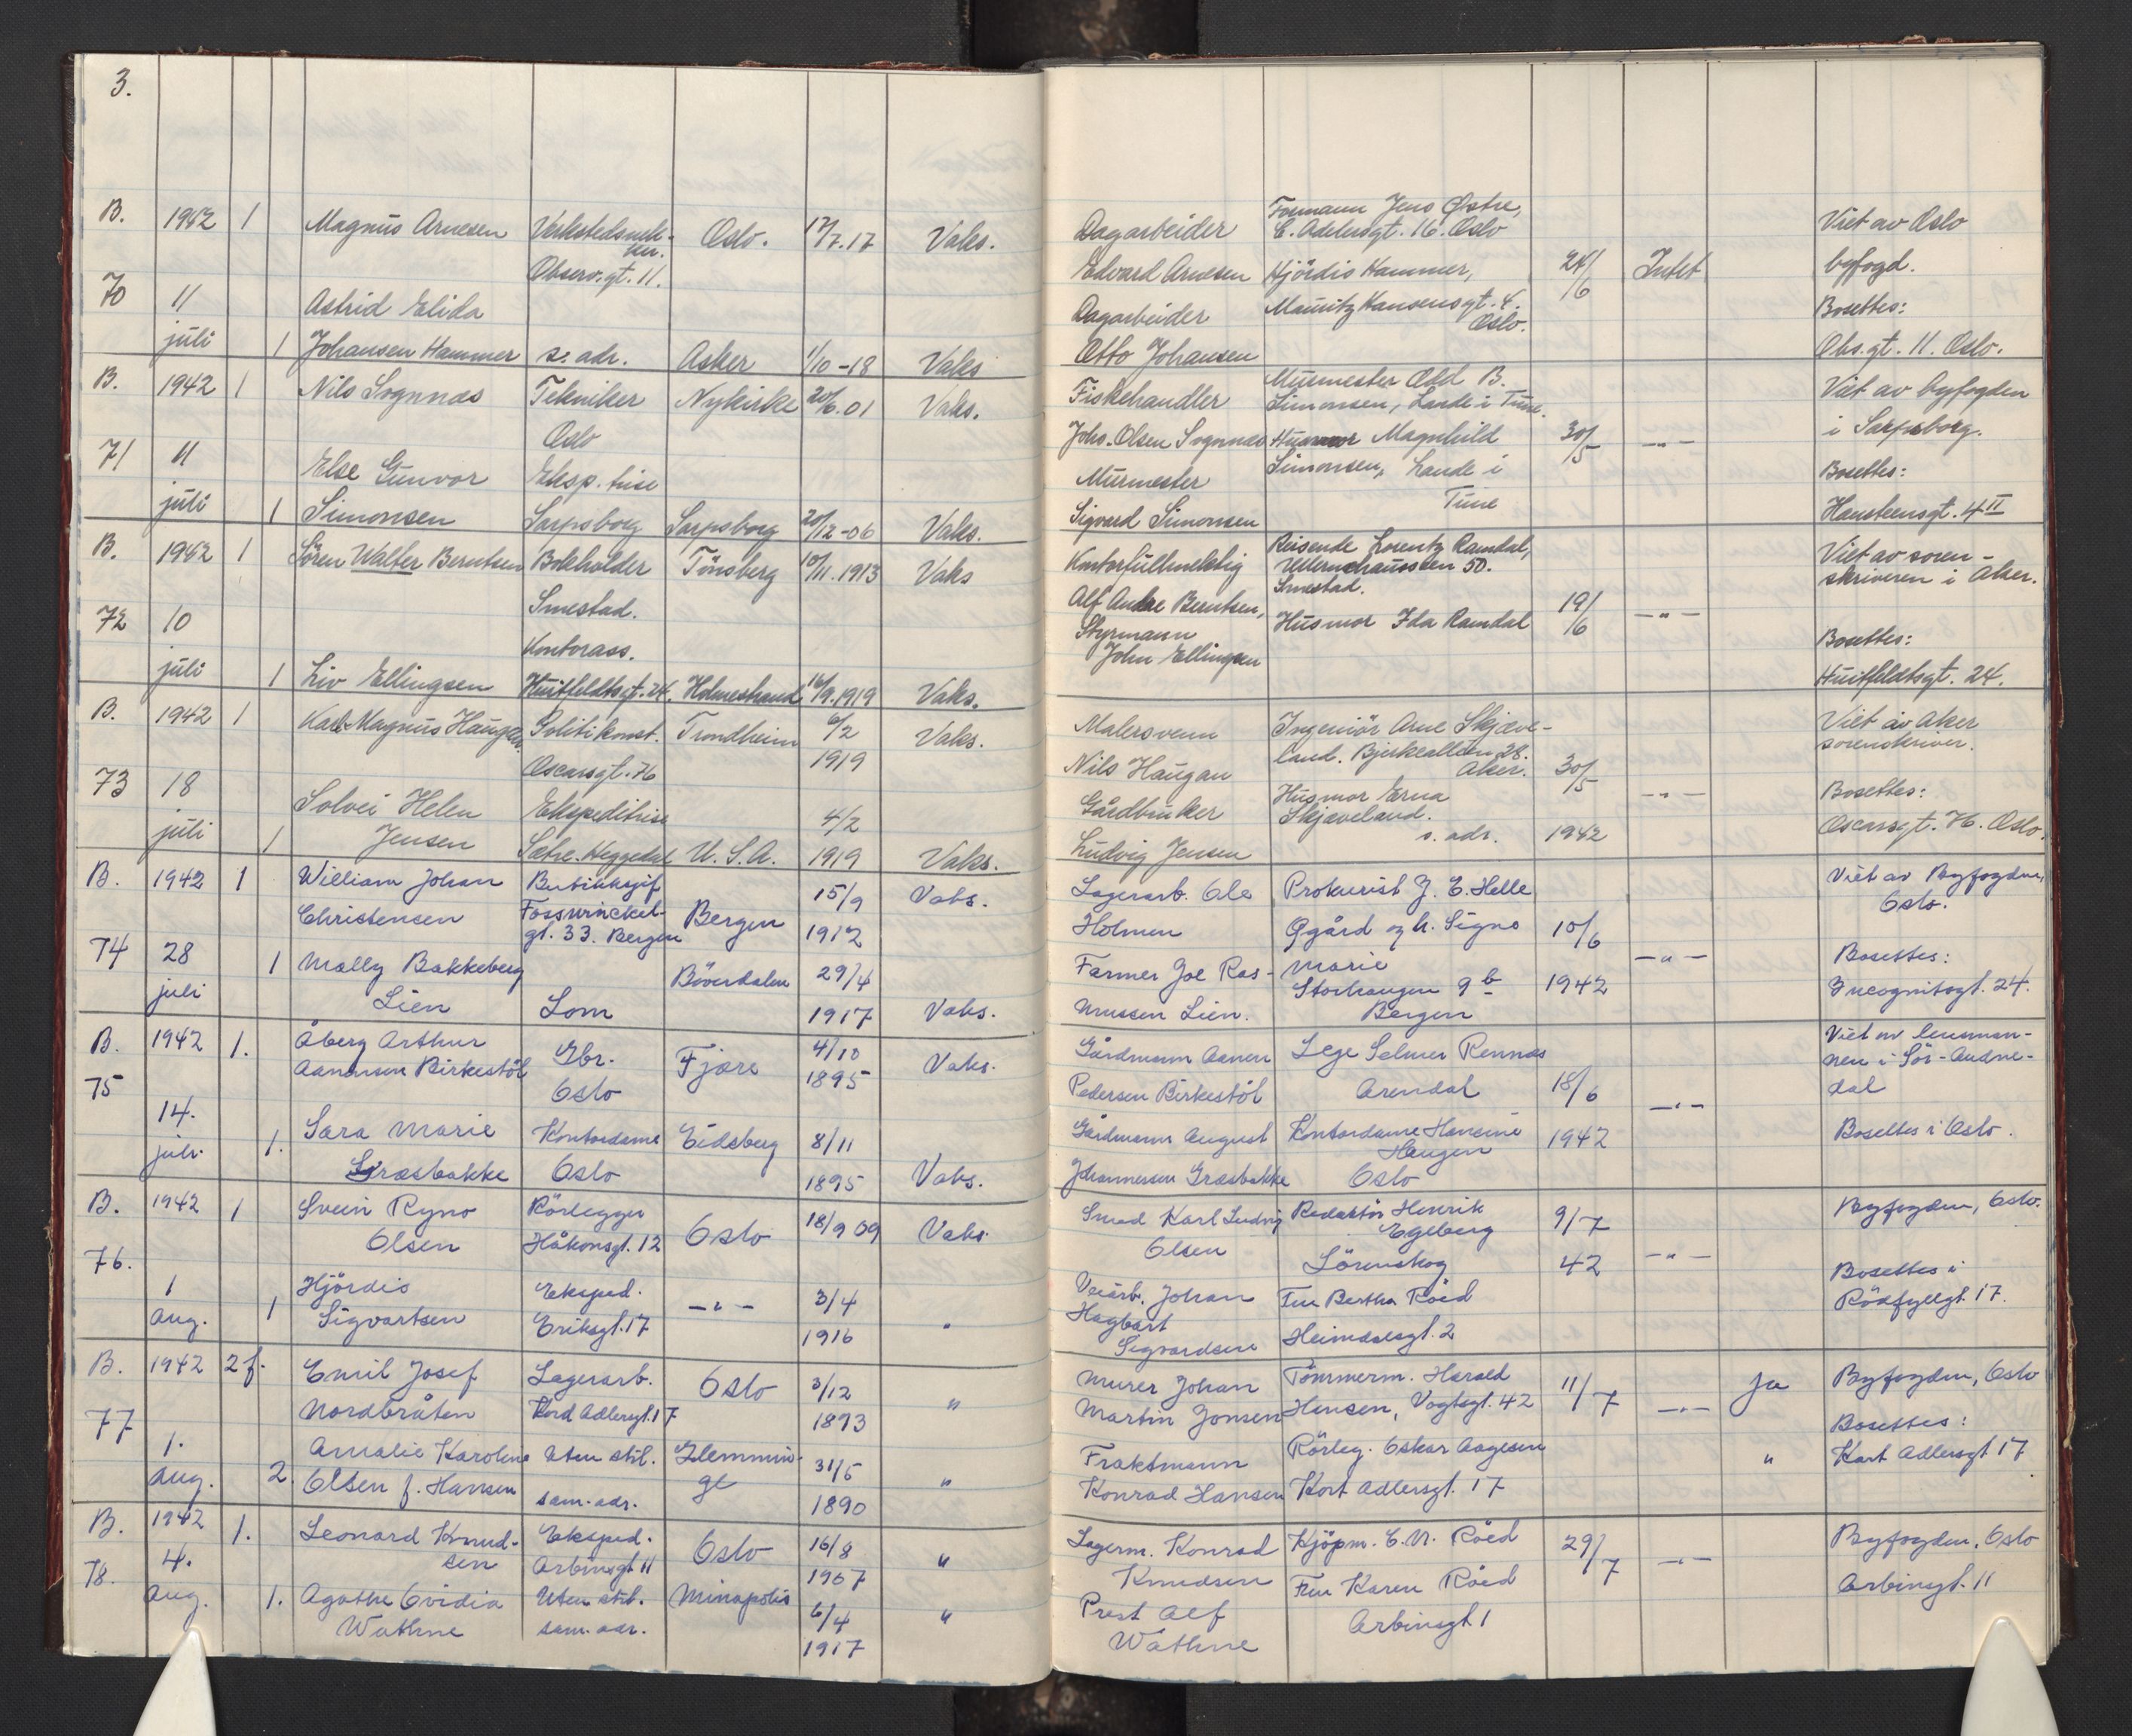 3.
B. 1942 1 Magnus Arnesen Verkstedsmek- Oslo. 17/7.17 Vaks. Dagarbeider Formann Jens Østre, Viet av Oslo
Observ.gt. 11. Edvard Arnesen C. Adelersgt. 16. Oslo 24/6 Intet byfogd.
70 11 Astrid Elida Dagarbeider Hjördis Hammer, Bosettes:
juli 1 Johansen Hammer s. adr. Asker 1/10-18 Vaks Otto Johansen Mauritz Hansensgt. 4. Oslo. Obs.gt. 11. Oslo.
B. 1942 1 Nils Sognnæs Tekniker Nykirke 20/6.01 Vaks. Fiskehandler Murmester Odd B. Viet av byfogden
Oslo Johs. Olsen Sognnæs Simonsen, Lande i Tune. 30/5 -"- i Sarpsborg.
71 11 Else Gunvor Eksp.trise Murmester Husmor Magnhild Bosettes:
juli 1 Simonsen Sarpsborg Sarpsborg 20/12-06 Vaks. Sigvard Simonsen Simonsen, Lande i Tune Hansteensgt. 4 II
B. 1942 1 Sören Walter Berntsen Bokholder Tönsberg 10/11.1913 Vaks Kontorfullmektig Reisende Lorentz Ramdal, Viet av soren-
Smestad. Alf Andre Berntsen, Ullernchausseen 50. Smestad. 19/6 -"- skriveren i Aker.
72 10 Kontorass. Styrmann Husmor Ida Ramdal Bosettes:
juli 1 Liv Ellingsen Huitfeldtsgt. 24. Holmestrand 16/9.1919 Vaks. John Ellingsen Huitfeldtsgt. 24.
B. 1942 1 Karl Magnus Haugan Politikonst. Trondheim 6/2 Vaks. Malersvenn Ingeniör Arne Skjæve- Viet av Aker
Oscarsgt. 76 1919 Nils Haugan land. Bjerkealleen 28. Aker. 30/5 -"- sorenskriver.
73 18 Solvei Helen Ekspeditrise 4/2 Gårdbruker Husmor Erna Bosettes:
juli 1 Jensen Sætre. Heggedal U.S.A. 1919 Vaks. Ludvig Jensen Skjæveland. s. adr. 1942 Oscarsgt. 76. Oslo.
B. 1942 1 William Johan Butikksjef 15/9 Vaks. Lagerarb. Ole Prokurist J. E. Helle Viet av Byfogden,
Christensen Fosswinckel- Bergen 1912 Holmen Øgård og h. Signe 10/6 Oslo.
gt. 33. Bergen
74 28 1 Mally Bakkeberg Böverdalen 29/4 Farmer Joe Ras- Marie -"- Bosettes:
juli Lien Lom 1917 Vaks. mussen Lien. Storhaugen 9b Bergen 1942 Incognitogt. 24.
B. 1942 1. Åberg Arthur Gbr. Fjære 4/10 Vaks. Gårdmann Aanen Lege Selmer Rennæs Viet av lensman-
75 Aanonsen Birkestöl Oslo 1895 Pedersen Birkestöl Arendal 18/6 -"- nen i Sör-Audne-
dal
14. Sara Marie Kontordame Eidsberg 8/11 Gårdmann August Kontordame Hansine 1942 Bosettes i Oslo.
juli 1. Græsbakke Oslo 1895 Vaks. Johannessen Græsbakke Haugen Oslo
B. 1942 1 Svein Ryno Rörlegger Oslo 18/9 09 Vaks. Smed Karl Ludvig Redaktör Henrik 9/7 Byfogden, Oslo.
76. Olsen Håkonsgt. 12 Olsen Egeberg Lörenskog 42 -"-
1 Hjördis Eksped. -"- 3/4 Veiarb. Johan Fru Bertha Röed Bosettes i
aug. 1 Sigvartsen Eriksgt. 17 1916 " Hagbart Sigvardsen Heimdalsgt. 2 Rödfyllgt. 17.
B. 1942 2 f. Emil Josef Lagerarb. Oslo 3/12 " Murer Johan Tömmerm. Harald 11/7 -"- Ja Byfogden, Oslo
77 Nordbråten Kord Adlersgt. 17 1893 Martin Jonsen Hansen, Vogtsgt. 42 Bosettes:
1. Amalie Karoline Uten stil. Glemmin- 31/5 Fraktmann Rörleg. Oskar Aagesen " Kort Adlersgt 17
aug. 2. Olsen f. Hansen sam. adr. ge 1890 " Konrad Hansen Kort Adlersgt. 17
B. 1942 1. Leonard Knud- Eksped. Oslo 16/8 " Lagerm. Konrad Kjöpm. C. N. Röed 29/7 -"- Byfogden, Oslo
78. 4. sen Arbinsgt 11 1907 Knudsen Fru Karen Röed Arbinsgt. 11
aug. 1. Agathe Ovidia Uten stil. Minapolis 6/4 " Prest Alf Arbinsgt. 1
Wathne sam. adr. 1917 Wathne